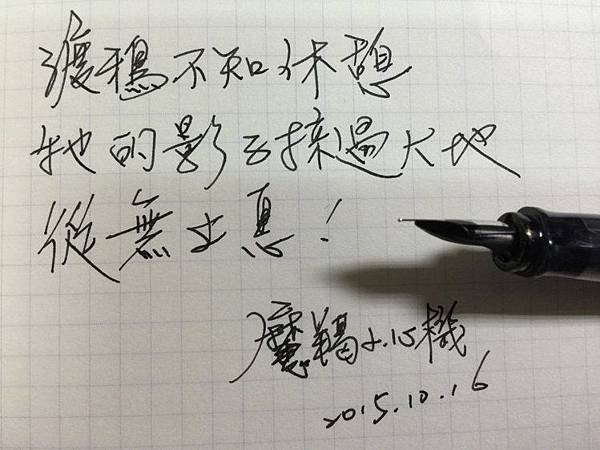 渡鴉不知休憩
牠的影子掠過大地
從無止息！
魔羯小心機
2015.10.16